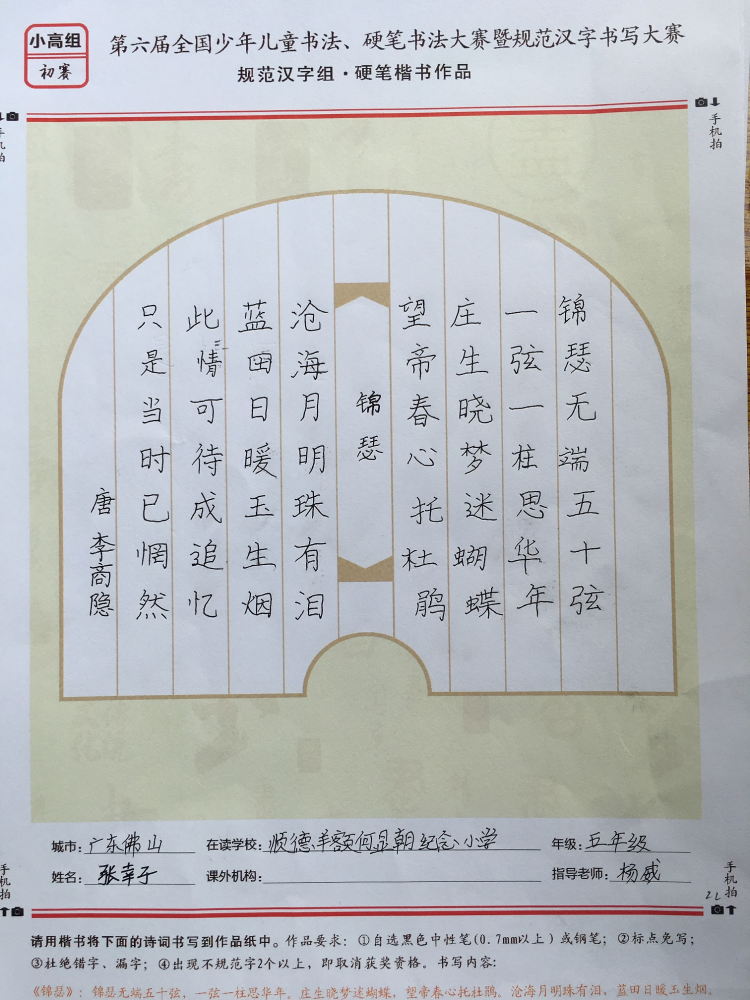 小高组
初赛
第六届全国少年儿童书法、硬笔书法大赛暨规范汉字书写大赛
规范汉字组·硬笔楷书作品
手机拍
手机拍
锦瑟无端五十弦
一弦一柱思华年
庄生晓梦迷蝴蝶
望帝春心托杜鹃
锦瑟
沧海月明珠有泪
蓝田日暖玉生烟
此情可待成追忆
只是当时已惘然
唐 李商隐
城市：广东佛山 在读学校：顺德羊额何显朝纪念小学 年级：五年级
姓名：张幸子 课外机构： 指导老师：杨威
手机拍
手机拍
请用楷书将下面的诗词书写到作品纸中。作品要求：①自选黑色中性笔(0.7mm以上)或钢笔；②标点免写；
③杜绝错字、漏字；④出现不规范字2个以上，即取消获奖资格。书写内容：
《锦瑟》：锦瑟无端五十弦，一弦一柱思华年。庄生晓梦迷蝴蝶，望帝春心托杜鹃。沧海月明珠有泪，蓝田日暖玉生烟。